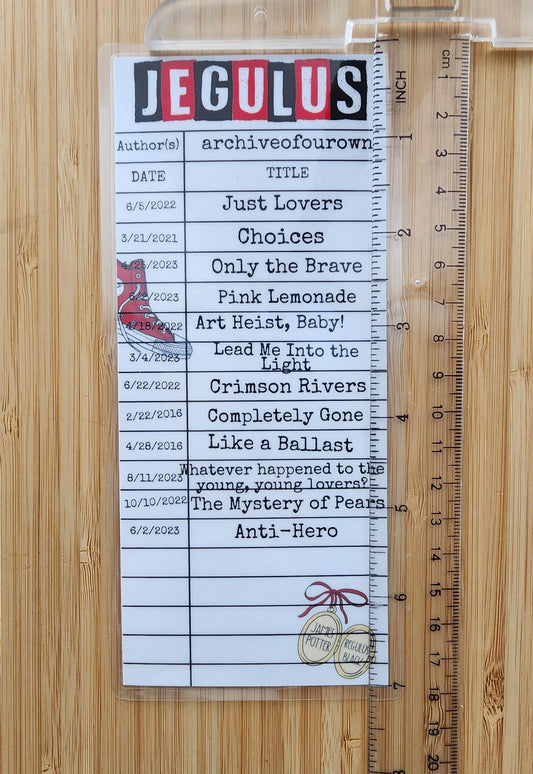 JEGULUS
Author(s) archiveofourown
DATE TITLE
6/5/2022 Just Lovers
3/21/2021 Choices
4/25/2023 Only the Brave
6/2/2023 Pink Lemonade
4/18/2022 Art Heist, Baby!
3/4/2023 Lead Me Into the
Light
6/22/2022 Crimson Rivers
2/22/2016 Completely Gone
4/28/2016 Like a Ballast
8/11/2023 Whatever happened to the
young, young lovers?
10/10/2022 The Mystery of Pears
6/2/2023 Anti-Hero
JAMES
POTTER
REGULUS
BLACK
INCH
1
2
3
4
5
6
7
8
cm 1
2
3
4
5
6
7
8
9
10
11
12
13
14
15
16
17
18
19
20